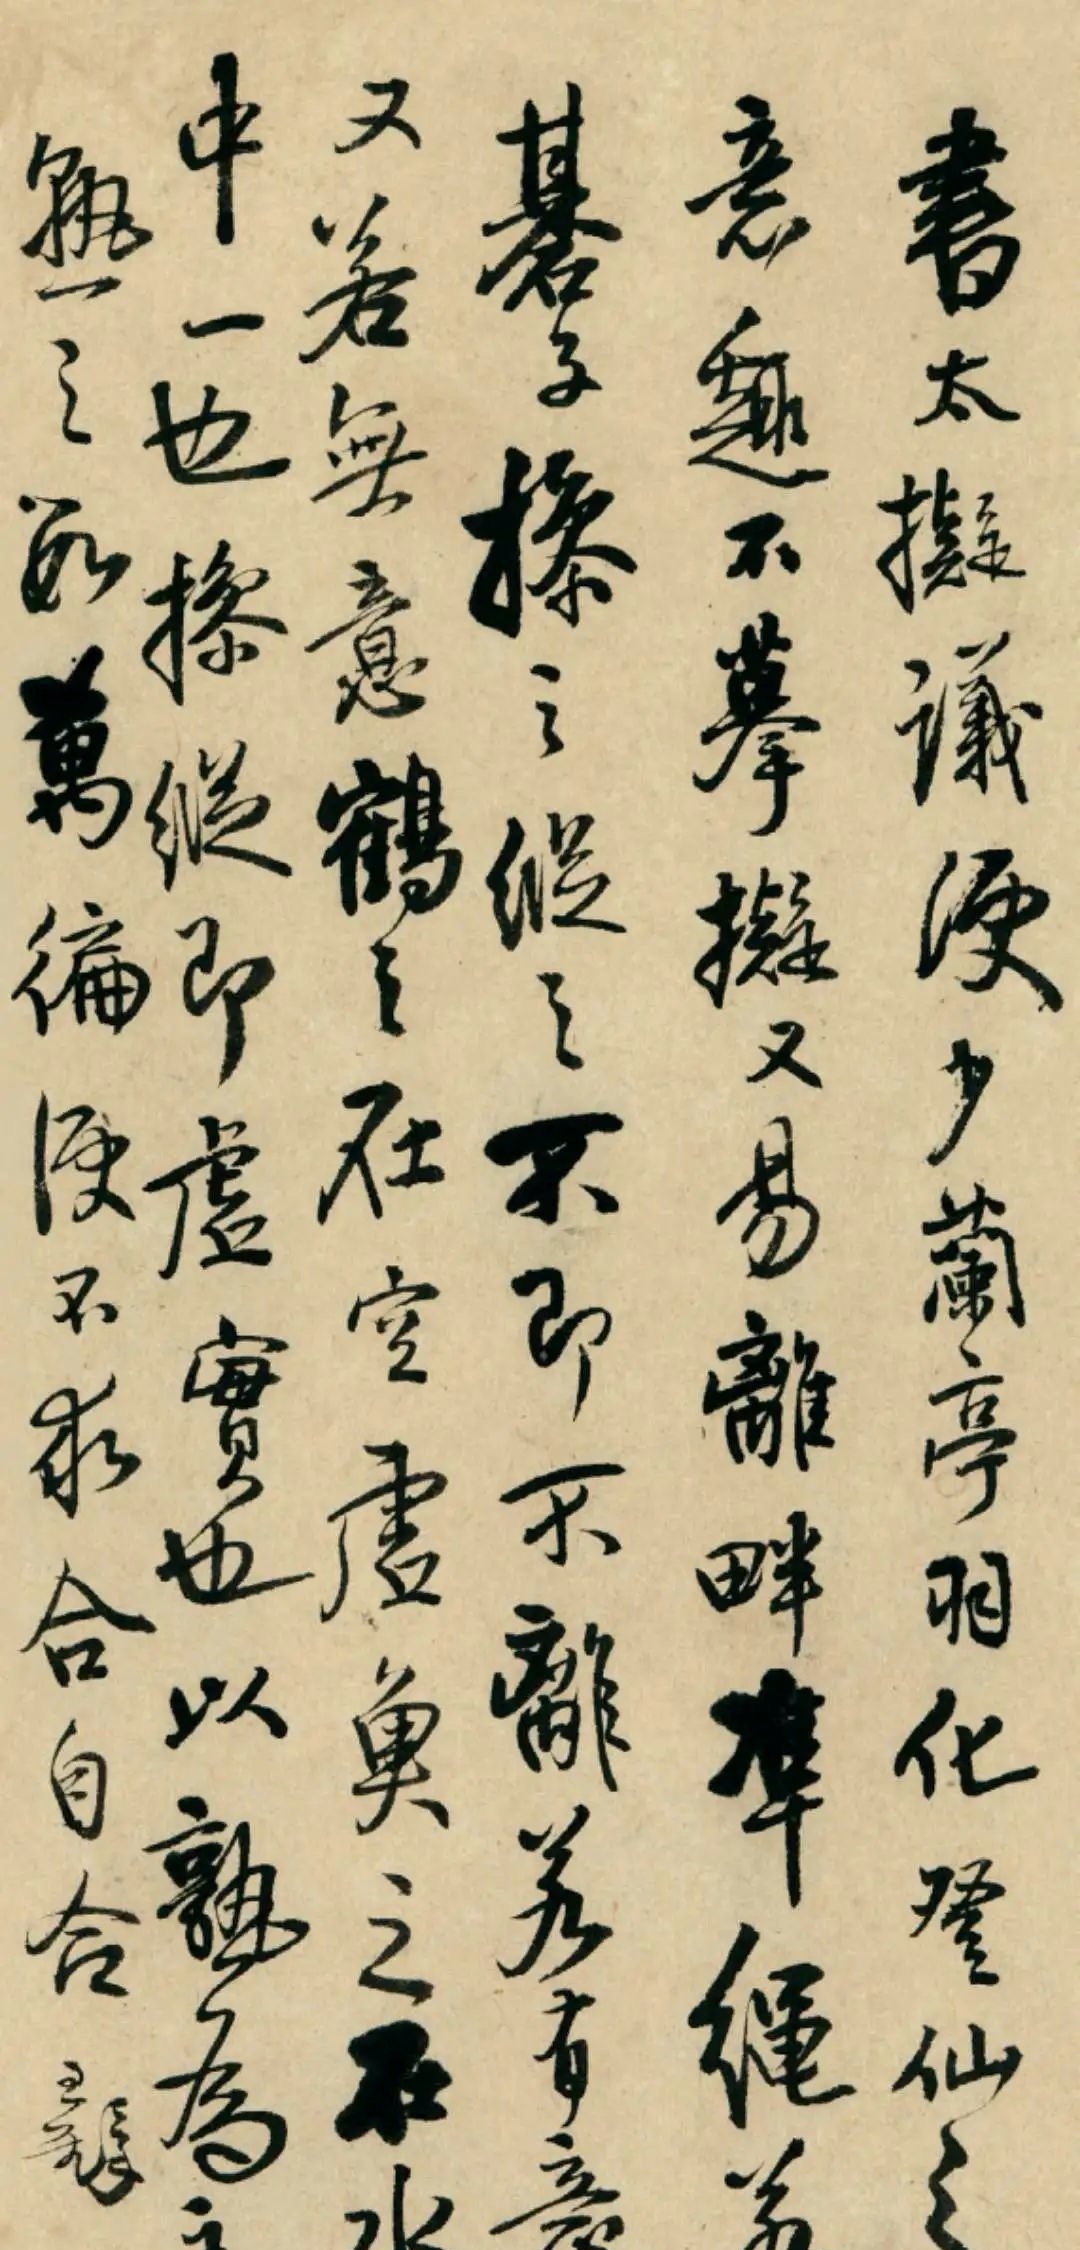 書太擬議便少蘭亭羽化登仙之
意趣不摹擬又易離畔準繩若
碁子操之縱之不即不離若有意
又若無意鶴之在空虛魚之在水
中一也操縱即虛實也以熟為之
熟之數萬徧便不求合自合
王龔